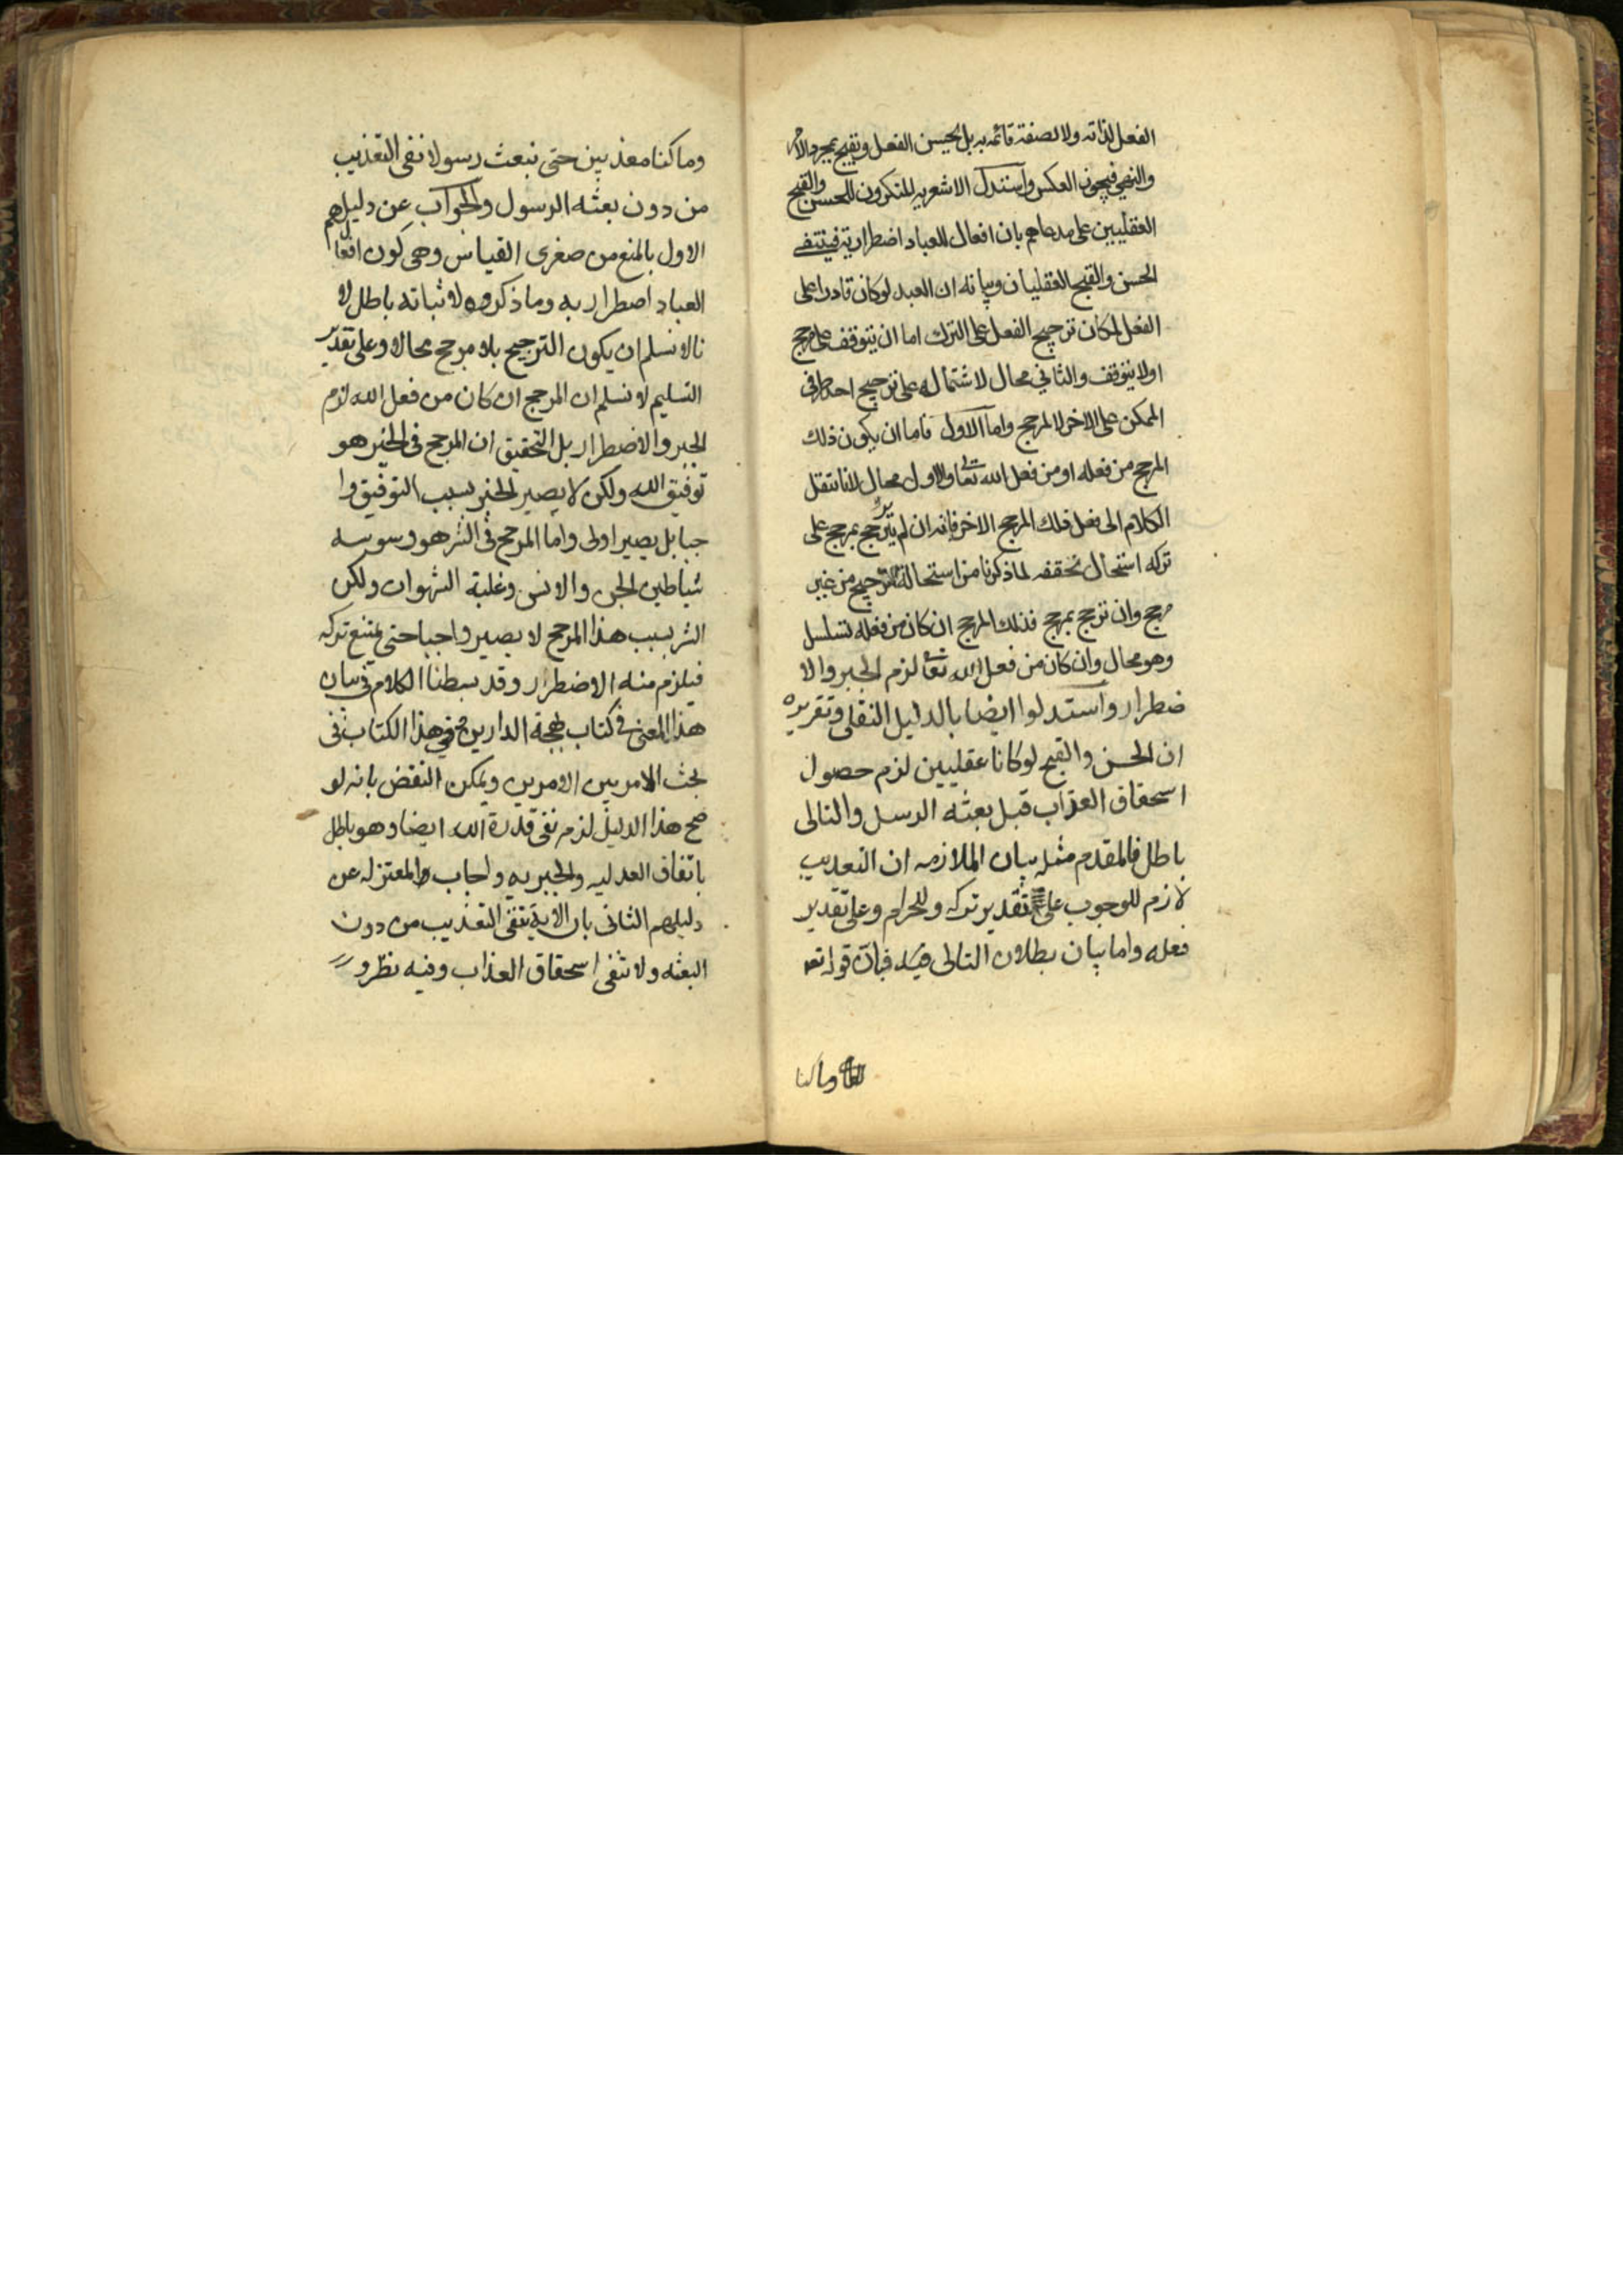 الفعل لذاته ولا لصفة قائمه به بل يحسن الفعل ويقبح بمجرد الامر
والنهي فيجوز العكس واستدل الاشعريه المنكرون للحسن والقبح
العقليين على مدعاهم بان افعال العباد اضطرارية فينتفي
الحسن والقبح العقليان وبيانه ان العبد لو كان قادرا على
الفعل لكان ترجيح الفعل على الترك اما ان يتوقف على مرجح
اولا يتوقف والثاني محال لاشتماله على ترجيح احد طرفى
الممكن على الاخر لا لمرجح واما الاول فاما ان يكون ذلك
المرجح من فعله او من فعل الله تعالى والاول محال لانا ننقل
الكلام الى فعل ذلك المرجح الاخر فانه ان لم يترجح بمرجح على
تركه استحال تحققه لما ذكرنا من استحالة الترجيح من غير
مرجح وان ترجح بمرجح فذلك المرجح ان كان من فعله تسلسل
وهو محال وان كان من فعل الله تعالى لزم الجبر والا
ضطرار واستدلوا ايضا بالدليل النقلى وتقريره
ان الحسن والقبح لو كانا عقليين لزم حصول
استحقاق العذاب قبل بعثه الرسل والتالى
باطل فالمقدم مثله بيان الملازمه ان التعذيب
لازم للوجوب على تقدير تركه وللحرام وعلى تقدير
فعله واما بيان بطلان التالى فبان قوله تعه
وما كنا
وما كنا معذبين حتى نبعث رسولا نفى التعذيب
من دون بعثه الرسول والجواب عن دليلهم
الاول بالمنع من صغرى القياس وهى كون افعال
العباد اضطراريه وما ذكروه لاثباته باطل لا
نا لا نسلم ان يكون الترجيح بلا مرجح محالا وعلى تقدير
التسليم لا نسلم ان المرجح ان كان من فعل الله لزم
الجبر والاضطرار بل التحقيق ان المرجح فى الخير هو
توفيق الله ولكن لا يصير الخير بسبب التوفيق وا
جبا بل يصير اولى واما المرجح فى الشر هو وسوسه
شياطين الجن والانس وغلبة الشهوات ولكن
الشر بسبب هذا المرجح لا يصير واجبا حتى يمتنع تركه
فيلزم منه الاضطرار وقد بسطنا الكلام فى بيان
هذا المعنى فى كتاب بهجة الدارين وفى هذا الكتاب فى
بحث الامر بين الامرين ويمكن النقض بانه لو
صح هذا الدليل لزم نفى قدرة الله ايضا وهو باطل
باتفاق العدليه والجبريه واجاب المعتزله عن
دليلهم الثانى بان الاية تنفى التعذيب من دون
البعثه ولا تنفى استحقاق العذاب وفيه نظر و